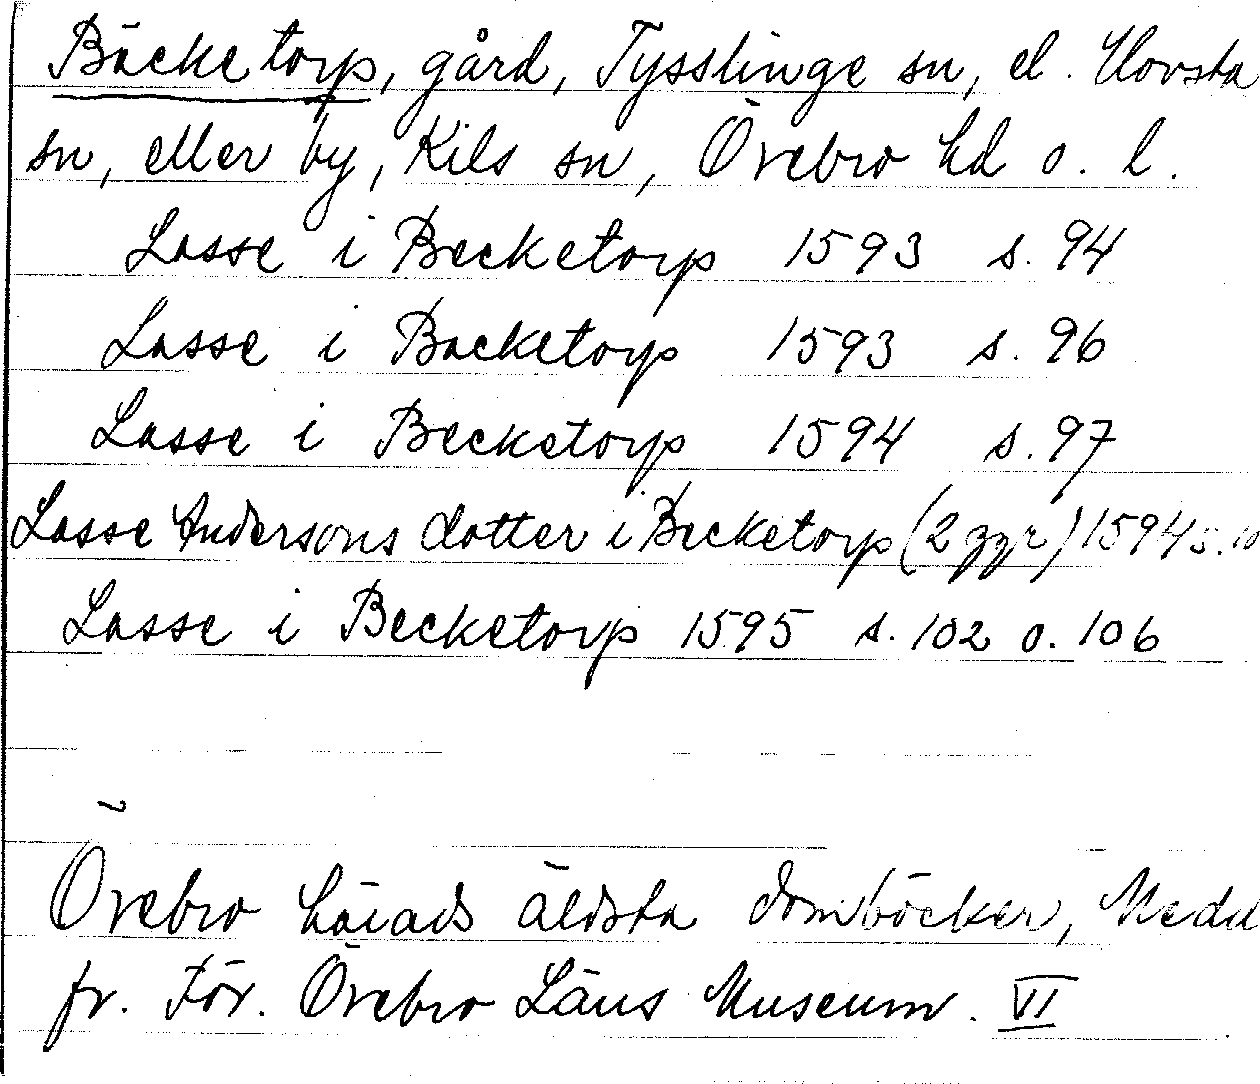 Bäcketorp, gård, Tysslinge sn, el. Hovsta
sn, eller by, Kils sn, Örebro hd o. l.
Lasse i Becketorp 1593 s. 94
Lasse i Backetorp 1593 s. 96
Lasse i Becketorp 1594 s. 97
Lasse Andersons dotter i Becketorp (2 ggr) 1594 s. 10
Lasse i Becketorp 1595 s. 102 o. 106
Örebro härads äldsta domböcker, Medd
fr. För. Örebro Läns Museum. VI